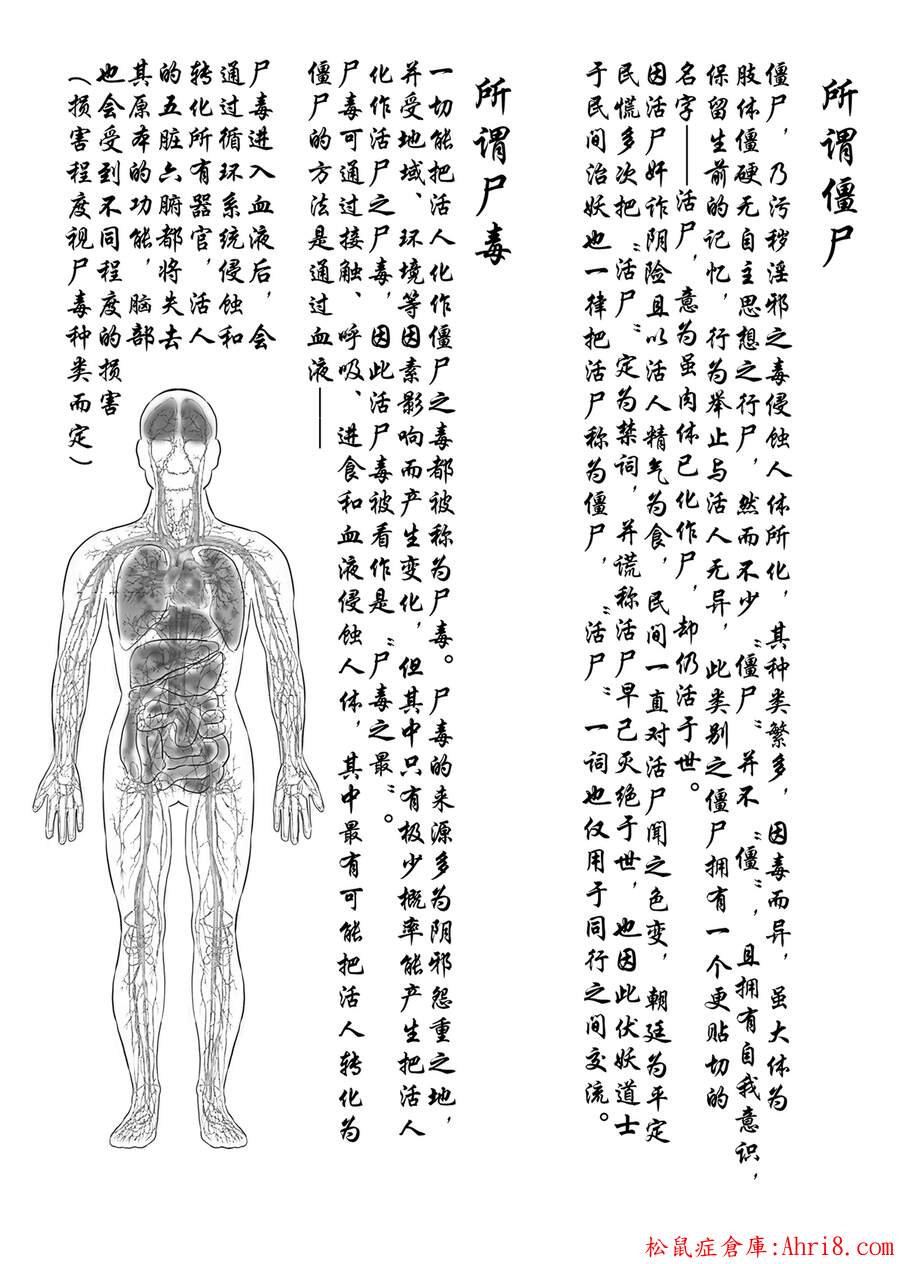 所谓僵尸
僵尸，乃污秽淫邪之毒侵蚀人体所化，其种类繁多，因毒而异，虽大体为
肢体僵硬无自主思想之行尸，然而不少“僵尸”并不“僵”，且拥有自我意识，
保留生前的记忆，行为举止与活人无异，此类别之僵尸拥有一个更贴切的
名字——活尸，意为虽肉体已化作尸，却仍活于世。
因活尸奸诈阴险且以活人精气为食，民间一直对活尸闻之色变，朝廷为平定
民慌多次把“活尸”定为禁词，并谎称活尸早已灭绝于世，也因此伏妖道士
于民间治妖也一律把活尸称为僵尸，“活尸”一词也仅用于同行之间交流。
所谓尸毒
一切能把活人化作僵尸之毒都被称为尸毒。尸毒的来源多为阴邪怨重之地，
并受地域、环境等因素影响而产生变化，但其中只有极少概率能产生把活人
化作活尸之尸毒，因此活尸毒被看作是“尸毒之最”。
尸毒可通过接触、呼吸、进食和血液侵蚀人体，其中最有可能把活人转化为
僵尸的方法是通过血液——
尸毒进入血液后，会
通过循环系统侵蚀和
转化所有器官，活人
的五脏六腑都将失去
其原本的功能，脑部
也会受到不同程度的损害
（损害程度视尸毒种类而定）
松鼠症倉庫:Ahri8.com